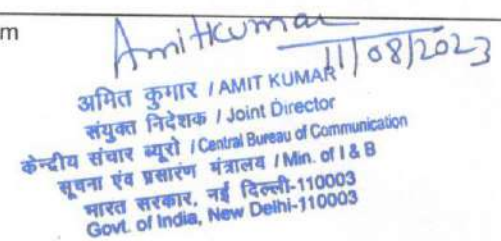 m
Amitkumar
11/08/2023
अमित कुमार / AMIT KUMAR
संयुक्त निदेशक / Joint Director
केन्द्रीय संचार ब्यूरो / Central Bureau of Communication
सूचना एंव प्रसारण मंत्रालय / Min. of I & B
भारत सरकार, नई दिल्ली-110003
Govt. of India, New Delhi-110003